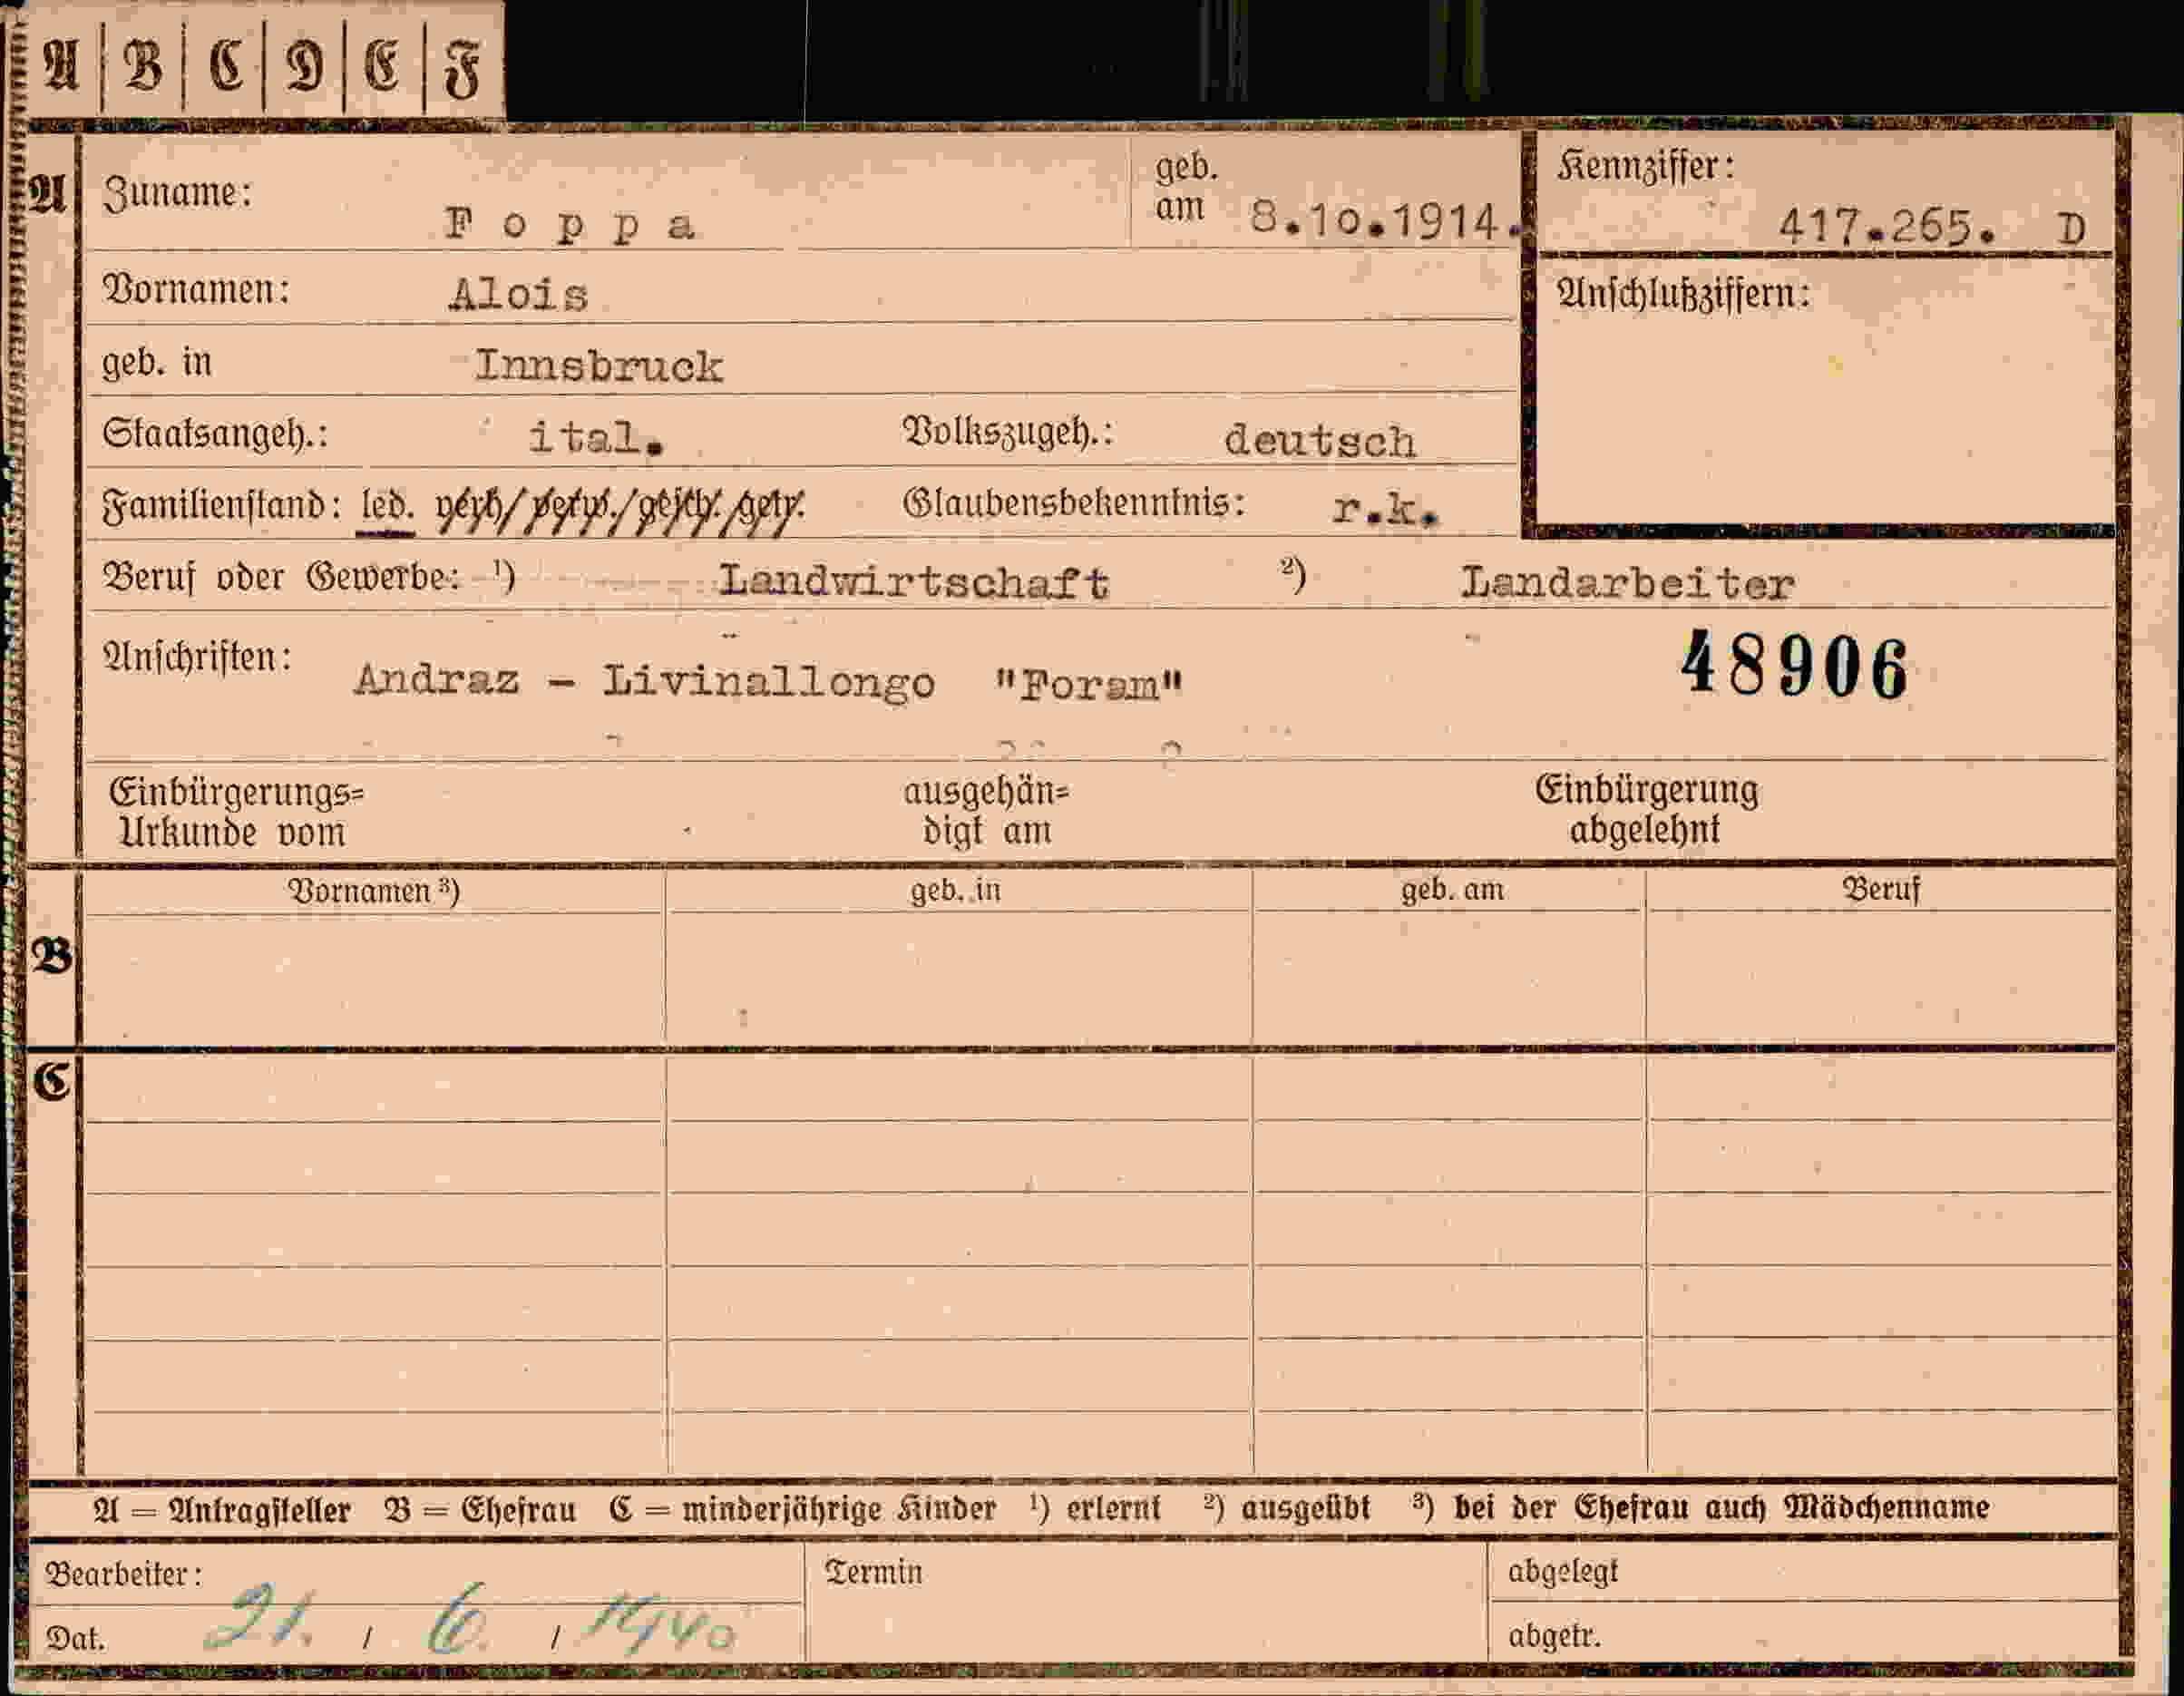 A | B | C | D | E | F
A Zuname: Foppa geb. am 8.10.1914. Kennziffer: 417.265. D
Vornamen: Alois Anschlußziffern:
geb. in Innsbruck
Staatsangeh.: ital. Volkszugeh.: deutsch
Familienstand: led. verh/verw./gesch./getr. Glaubensbekenntnis: r.k.
Beruf oder Gewerbe: ¹) Landwirtschaft ²) Landarbeiter
Anschriften: Andraz - Livinallongo "Foram" 48906
Einbürgerungs= ausgehän= Einbürgerung
Urkunde vom digt am abgelehnt
Vornamen ³) geb. in geb. am Beruf
B
C
A = Antragsteller B = Ehefrau C = minderjährige Kinder ¹) erlernt ²) ausgeübt ³) bei der Ehefrau auch Mädchenname
Bearbeiter: Termin abgelegt
Dat. 21. / 6. / 1940 abgetr.